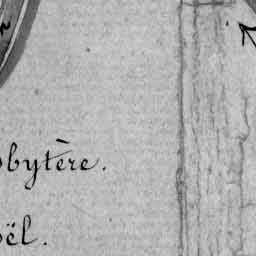 bytère.
ël.